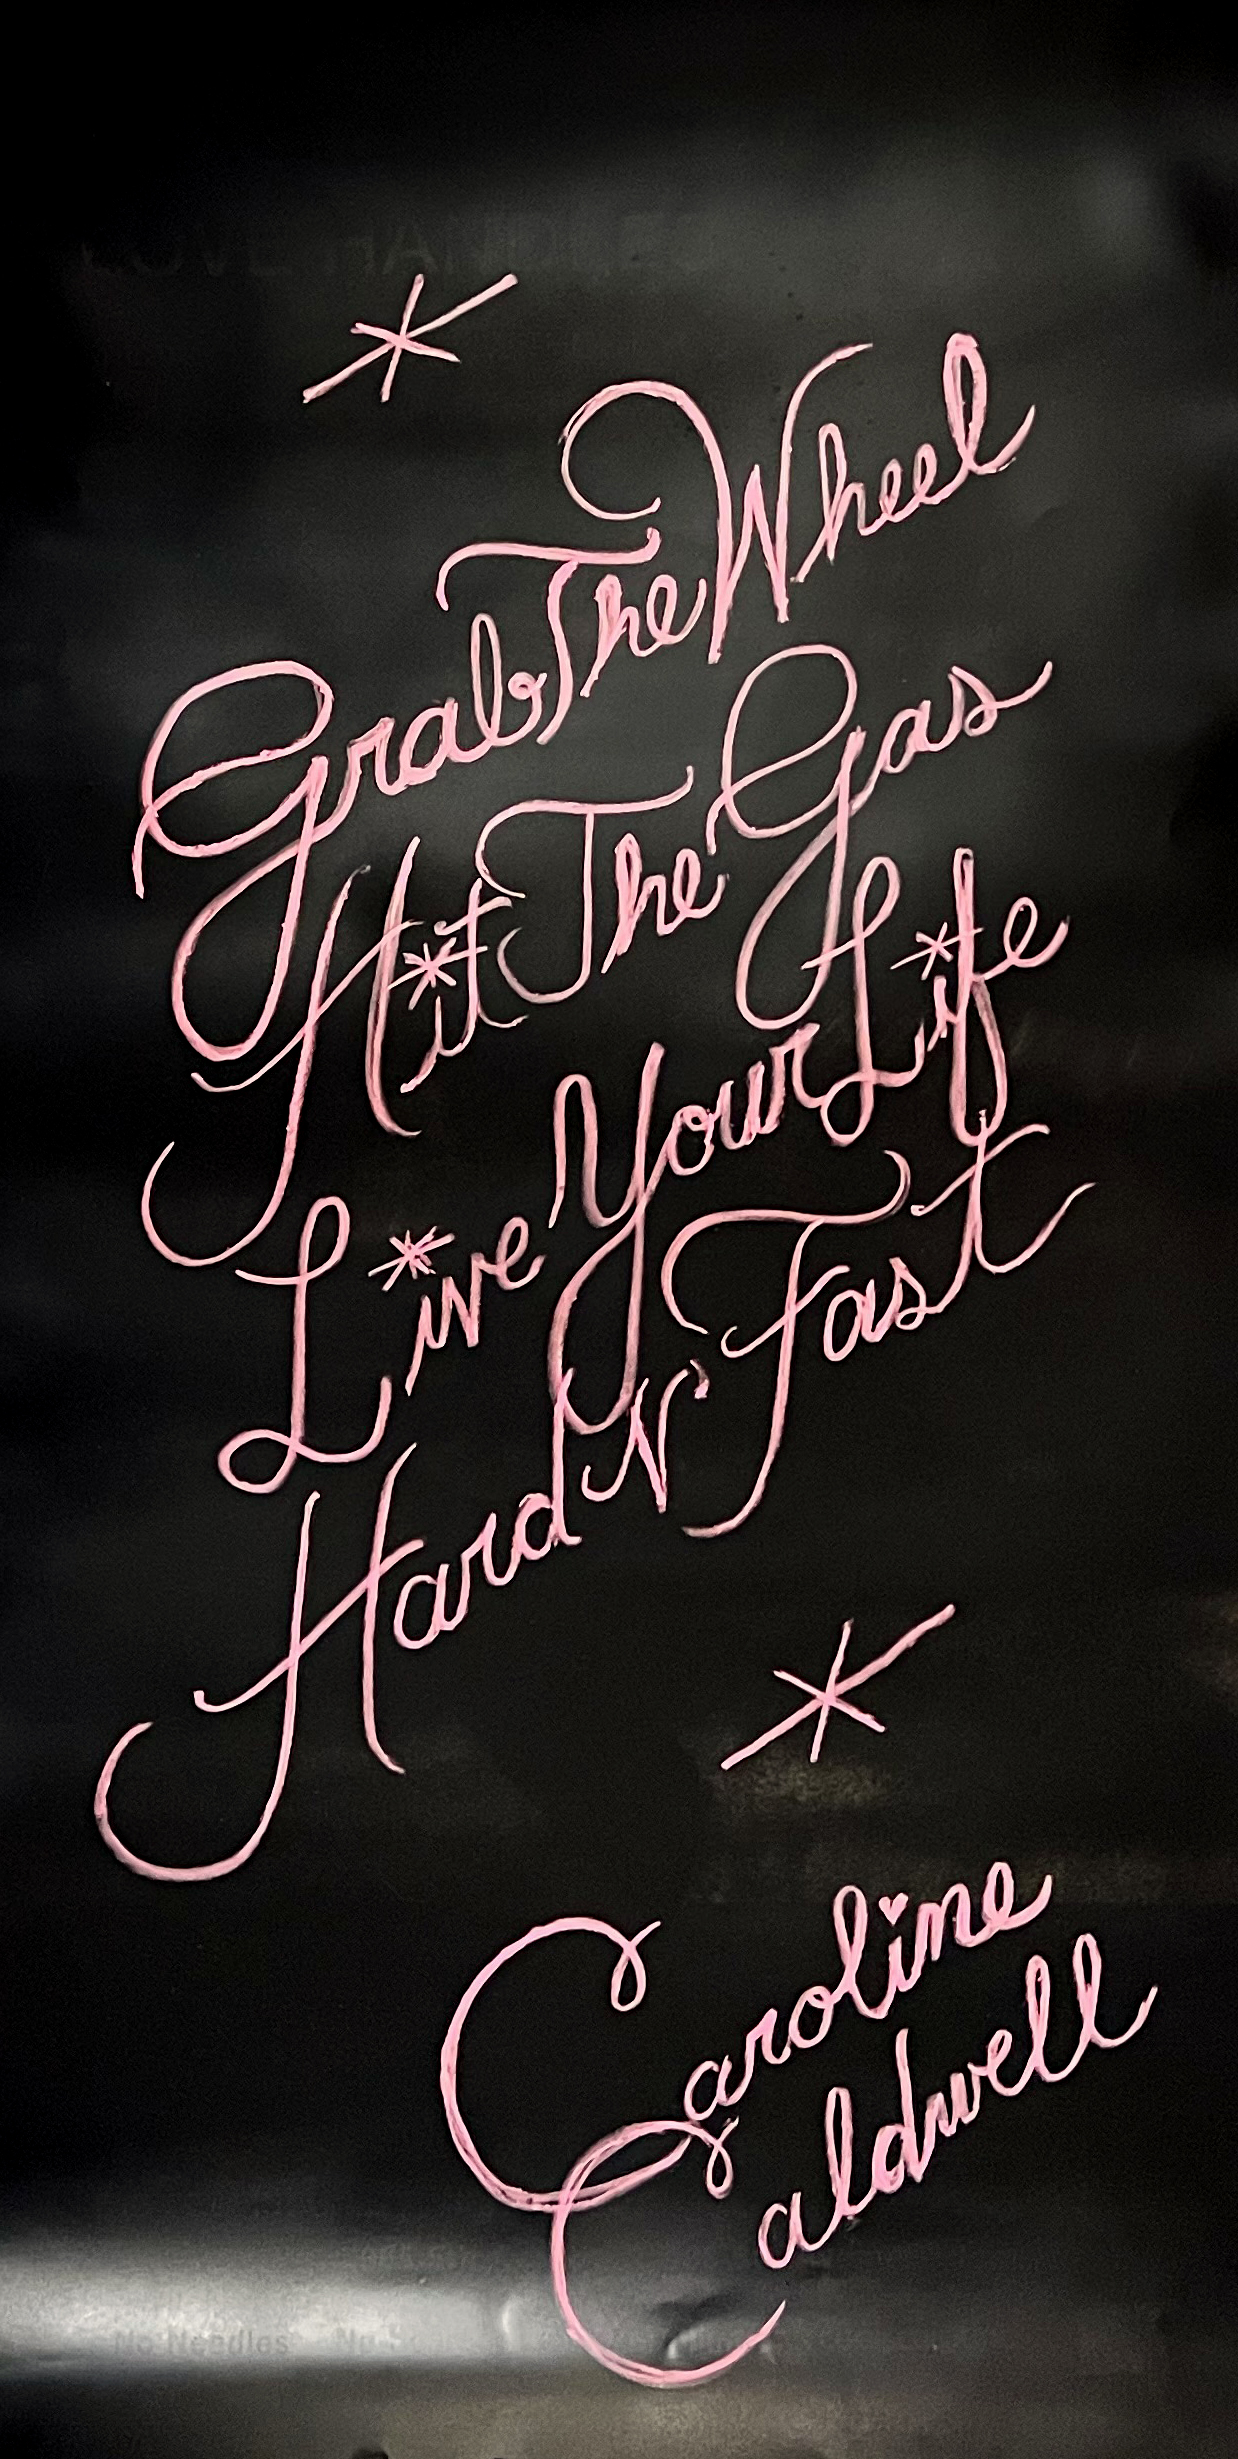 Grab The Wheel
Hit The Gas
Live Your Life
Hard N' Fast
Caroline
Caldwell
No Needles